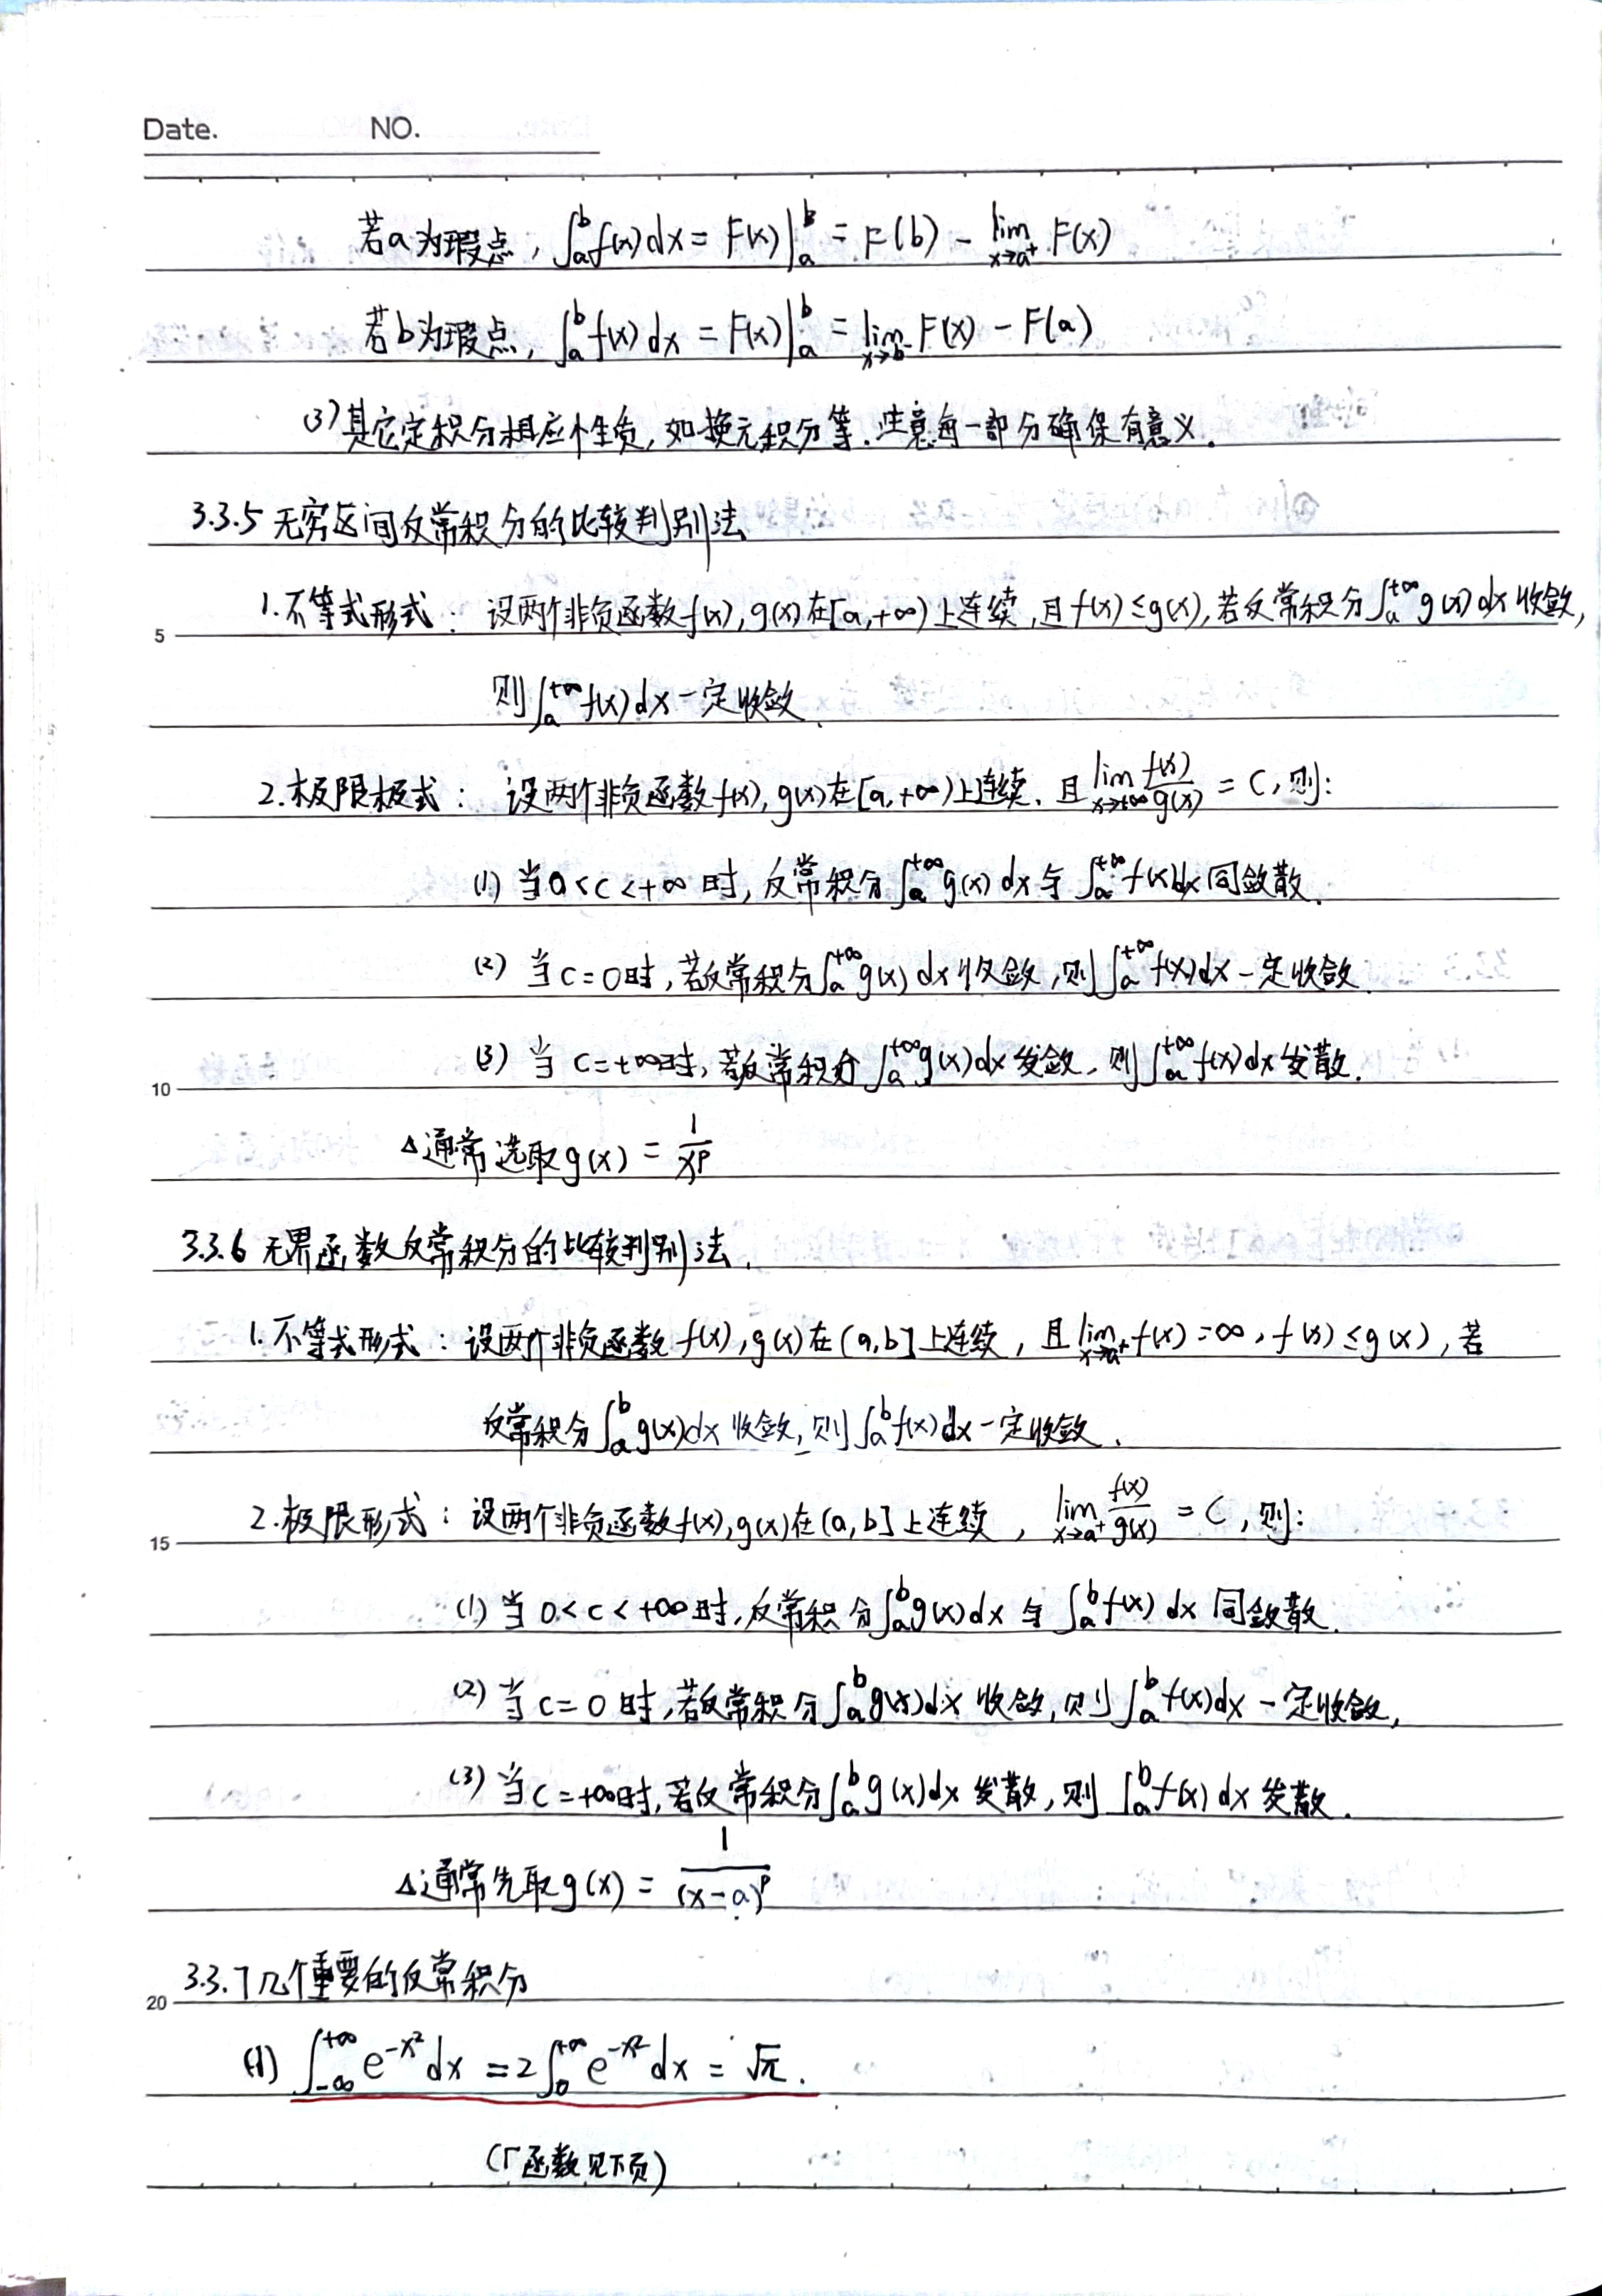 Date. NO.
若a为瑕点, ∫_a^b f(x)dx = F(x)|_a^b = F(b) - lim_{x→a⁺} F(x)
若b为瑕点, ∫_a^b f(x)dx = F(x)|_a^b = lim_{x→b⁻} F(x) - F(a)
(3) 其它定积分相应性质, 如换元积分等. 注意每一部分确保有意义.
3.3.5 无穷区间反常积分的比较判别法
1.不等式形式: 设两个非负函数f(x), g(x)在[a,+∞)上连续, 且f(x)≤g(x), 若反常积分∫_a^{+∞} g(x)dx收敛,
5
则∫_a^{+∞} f(x)dx一定收敛.
2.极限极式: 设两个非负函数f(x), g(x)在[a,+∞)上连续, 且lim_{x→+∞} f(x)/g(x) = C, 则:
(1) 当0<c<+∞时, 反常积分∫_a^{+∞} g(x)dx与∫_a^{+∞} f(x)dx同敛散.
(2) 当c=0时, 若反常积分∫_a^{+∞} g(x)dx收敛, 则∫_a^{+∞} f(x)dx一定收敛.
(3) 当c=+∞时, 若反常积分∫_a^{+∞} g(x)dx发敛, 则∫_a^{+∞} f(x)dx发散.
10
Δ通常选取g(x) = 1/x^p
3.3.6 无界函数反常积分的比较判别法.
1.不等式形式: 设两个非负函数f(x), g(x)在(a,b]上连续, 且lim_{x→a⁺} f(x)=∞, f(x)≤g(x), 若
反常积分∫_a^b g(x)dx收敛, 则∫_a^b f(x)dx一定收敛.
2.极限形式: 设两个非负函数f(x), g(x)在(a,b]上连续, lim_{x→a⁺} f(x)/g(x) = C, 则:
15
(1) 当0<c<+∞时, 反常积分∫_a^b g(x)dx与∫_a^b f(x)dx同敛散.
(2) 当c=0时, 若反常积分∫_a^b g(x)dx收敛, 则∫_a^b f(x)dx一定收敛,
(3) 当c=+∞时, 若反常积分∫_a^b g(x)dx发散, 则∫_a^b f(x)dx发散.
Δ通常先取g(x) = 1/(x-a)^p
3.3.7 几个重要的反常积分
20
(1) ∫_{-∞}^{+∞} e^{-x²}dx = 2∫_0^{+∞} e^{-x²}dx = √π.
(Γ函数见下页)